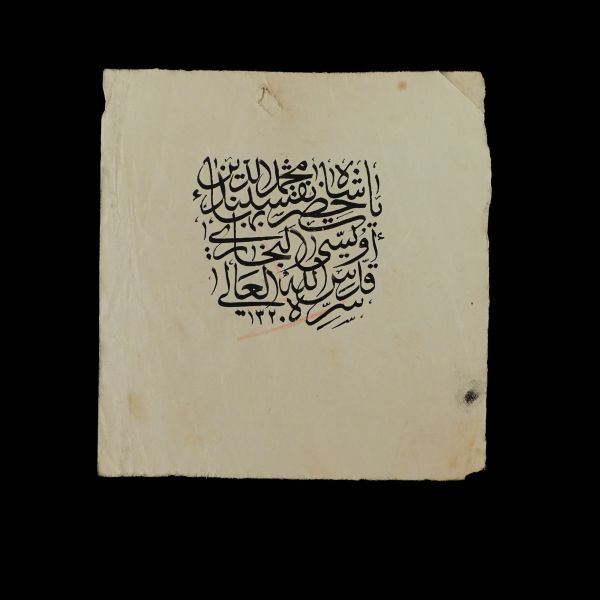 يا حضرت شاه نقشبند محمد بهاء الدين
أويسي البخاري
قدس الله سره العالي
١٣٢٠